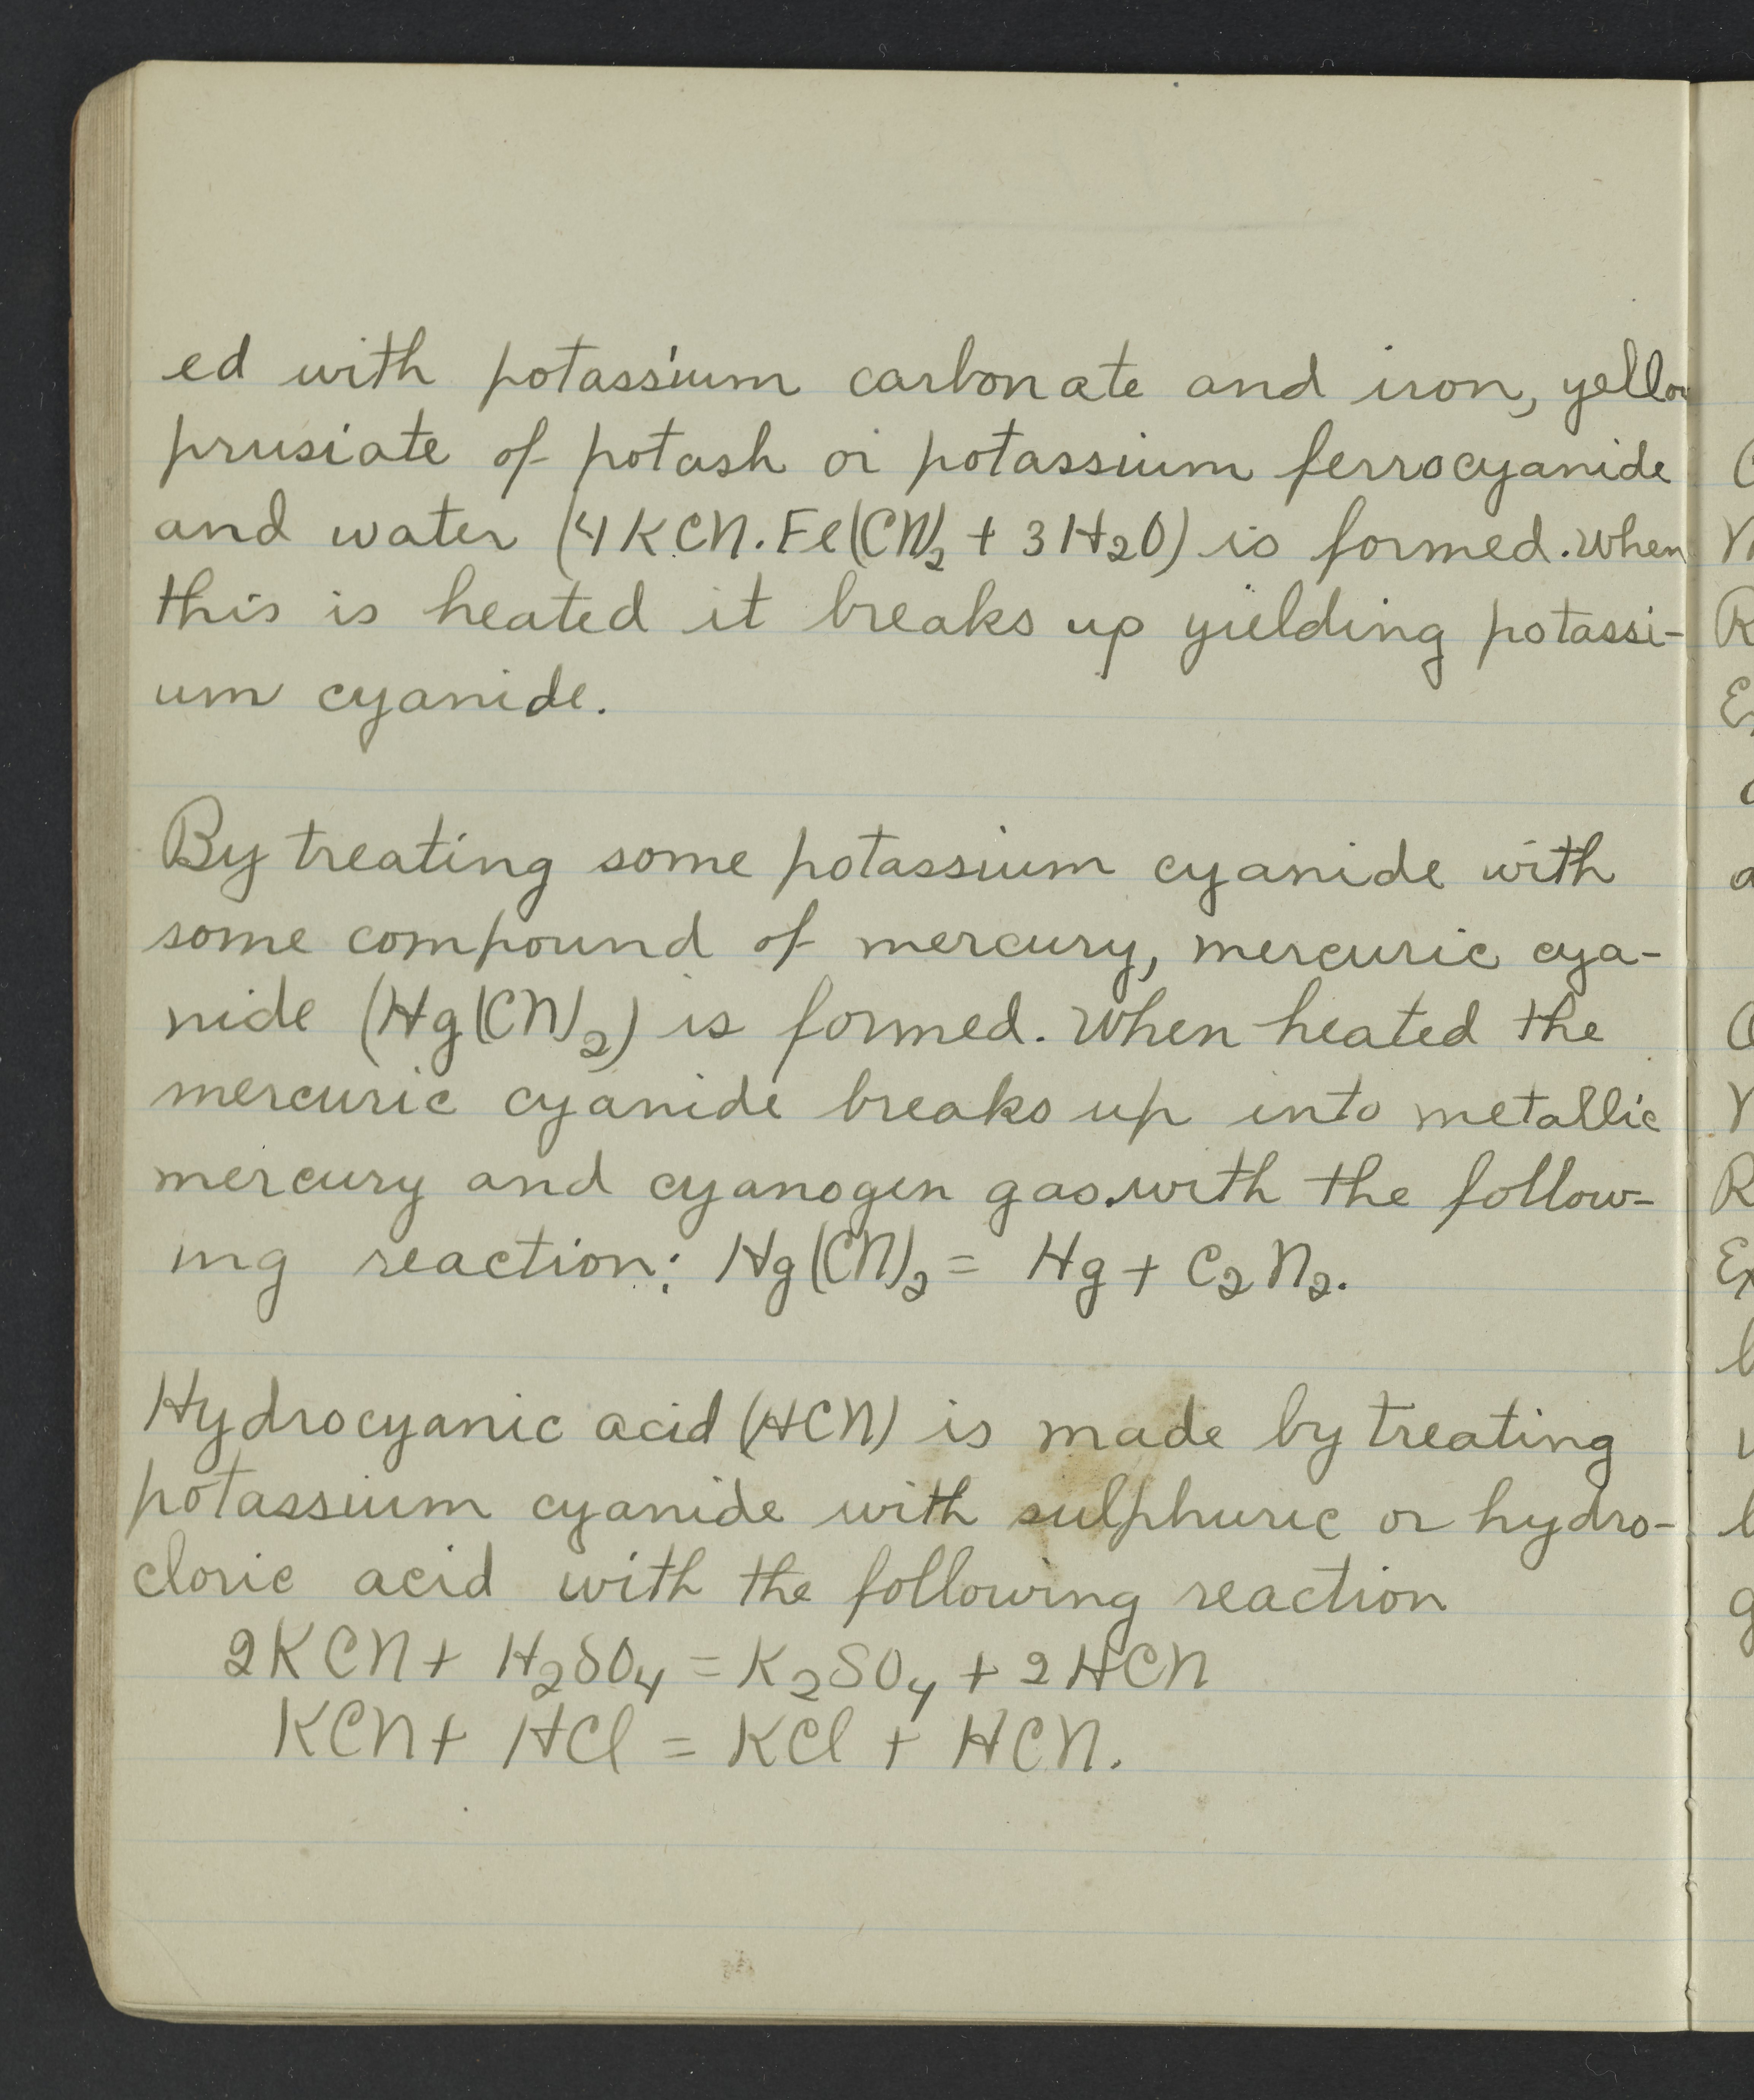 ed with potassium carbonate and iron, yellow
prusiate of potash or potassium ferrocyanide
and water (4KCN.Fe(CN)₂ + 3H₂O) is formed. When
this is heated it breaks up yielding potassi-
um cyanide.
By treating some potassium cyanide with
some compound of mercury, mercuric cya-
nide (Hg(CN)₂) is formed. When heated the
mercuric cyanide breaks up into metallic
mercury and cyanogen gas.with the follow-
ing reaction: Hg(CN)₂ = Hg + C₂N₂.
Hydrocyanic acid (HCN) is made by treating
potassium cyanide with sulphuric or hydro-
cloric acid with the following reaction
2KCN + H₂SO₄ = K₂SO₄ + 2HCN
KCN + HCl = KCl + HCN.